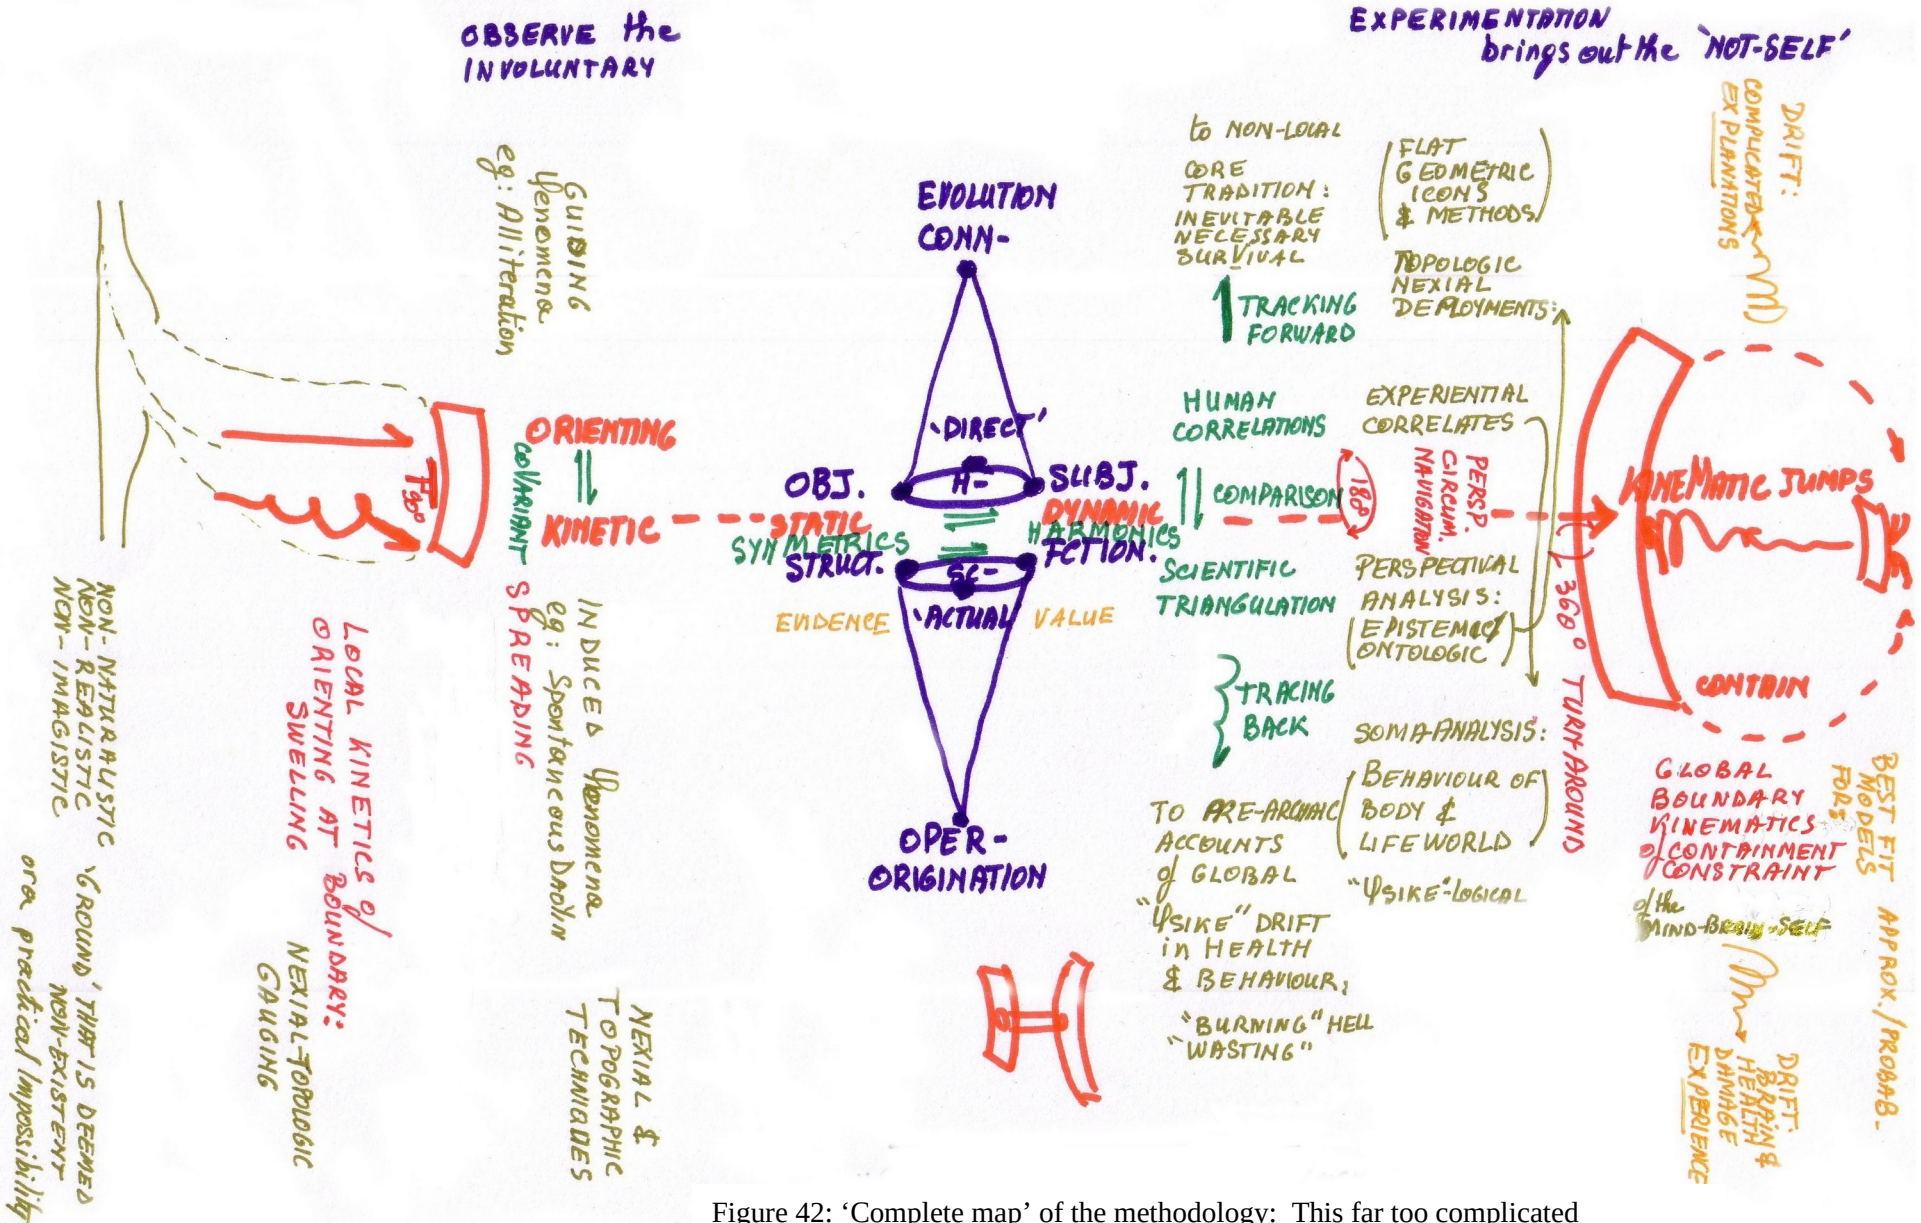 OBSERVE the
INVOLUNTARY
EXPERIMENTATION
brings out the 'NOT-SELF'
GUIDING
Ψenomena
eg: Alliteration
ORIENTING
COVARIANT
KINETIC
F90°
SPREADING
INDUCED Ψenomena
eg: Spontaneous
LOCAL KINETICS of
ORIENTING AT BOUNDARY:
SWELLING
NEXIAL-TOPOLOGIC
GAUGING
NEXIAL &
TOPOGRAPHIC
TECHNIQUES
NON-NATURALISTIC 'GROUND' THAT IS DEEMED
NON-REALISTIC NON-EXISTENT
NON-IMAGISTIC or a practical impossibility
EVOLUTION
CONN-
'DIRECT'
OBJ.
H-
SUBJ.
STATIC
DYNAMIC
SYMMETRICS
HARMONICS
STRUCT.
SC-
FCTION.
EVIDENCE
'ACTUAL'
VALUE
OPER-
ORIGINATION
to NON-LOCAL
CORE
TRADITION:
INEVITABLE
NECESSARY
SURVIVAL
TRACKING
FORWARD
HUMAN
CORRELATIONS
COMPARISON
SCIENTIFIC
TRIANGULATION
TRACING
BACK
TO PRE-ARCHAIC
ACCOUNTS
of GLOBAL
"Ψsike" DRIFT
in HEALTH
& BEHAVIOUR,
"BURNING" HELL
"WASTING"
(FLAT
GEOMETRIC
ICONS
& METHODS)
TOPOLOGIC
NEXIAL
DEPLOYMENTS:
EXPERIENTIAL
CORRELATES
180°
PERSP.
CIRCUM.
NAVIGATION
PERSPECTIVAL
ANALYSIS:
(EPISTEMIC/
ONTOLOGIC)
SOMA-ANALYSIS:
(BEHAVIOUR OF
BODY &
LIFEWORLD)
"Ψsike"-LOGICAL
( ) 360° TURNAROUND
DRIFT:
COMPLICATED
EXPLANATIONS
KINEMATIC JUMPS
CONTAIN
GLOBAL
BOUNDARY
KINEMATICS
of CONTAINMENT
of CONSTRAINT
of the
MIND-BRAIN-SELF
BEST FIT APPROX./PROBAB-
MODELS
FOR:
DRIFT:
BRAIN &
HEALTH
DAMAGE
EXPERIENCE
Figure 42: ‘Complete map’ of the methodology: This far too complicated